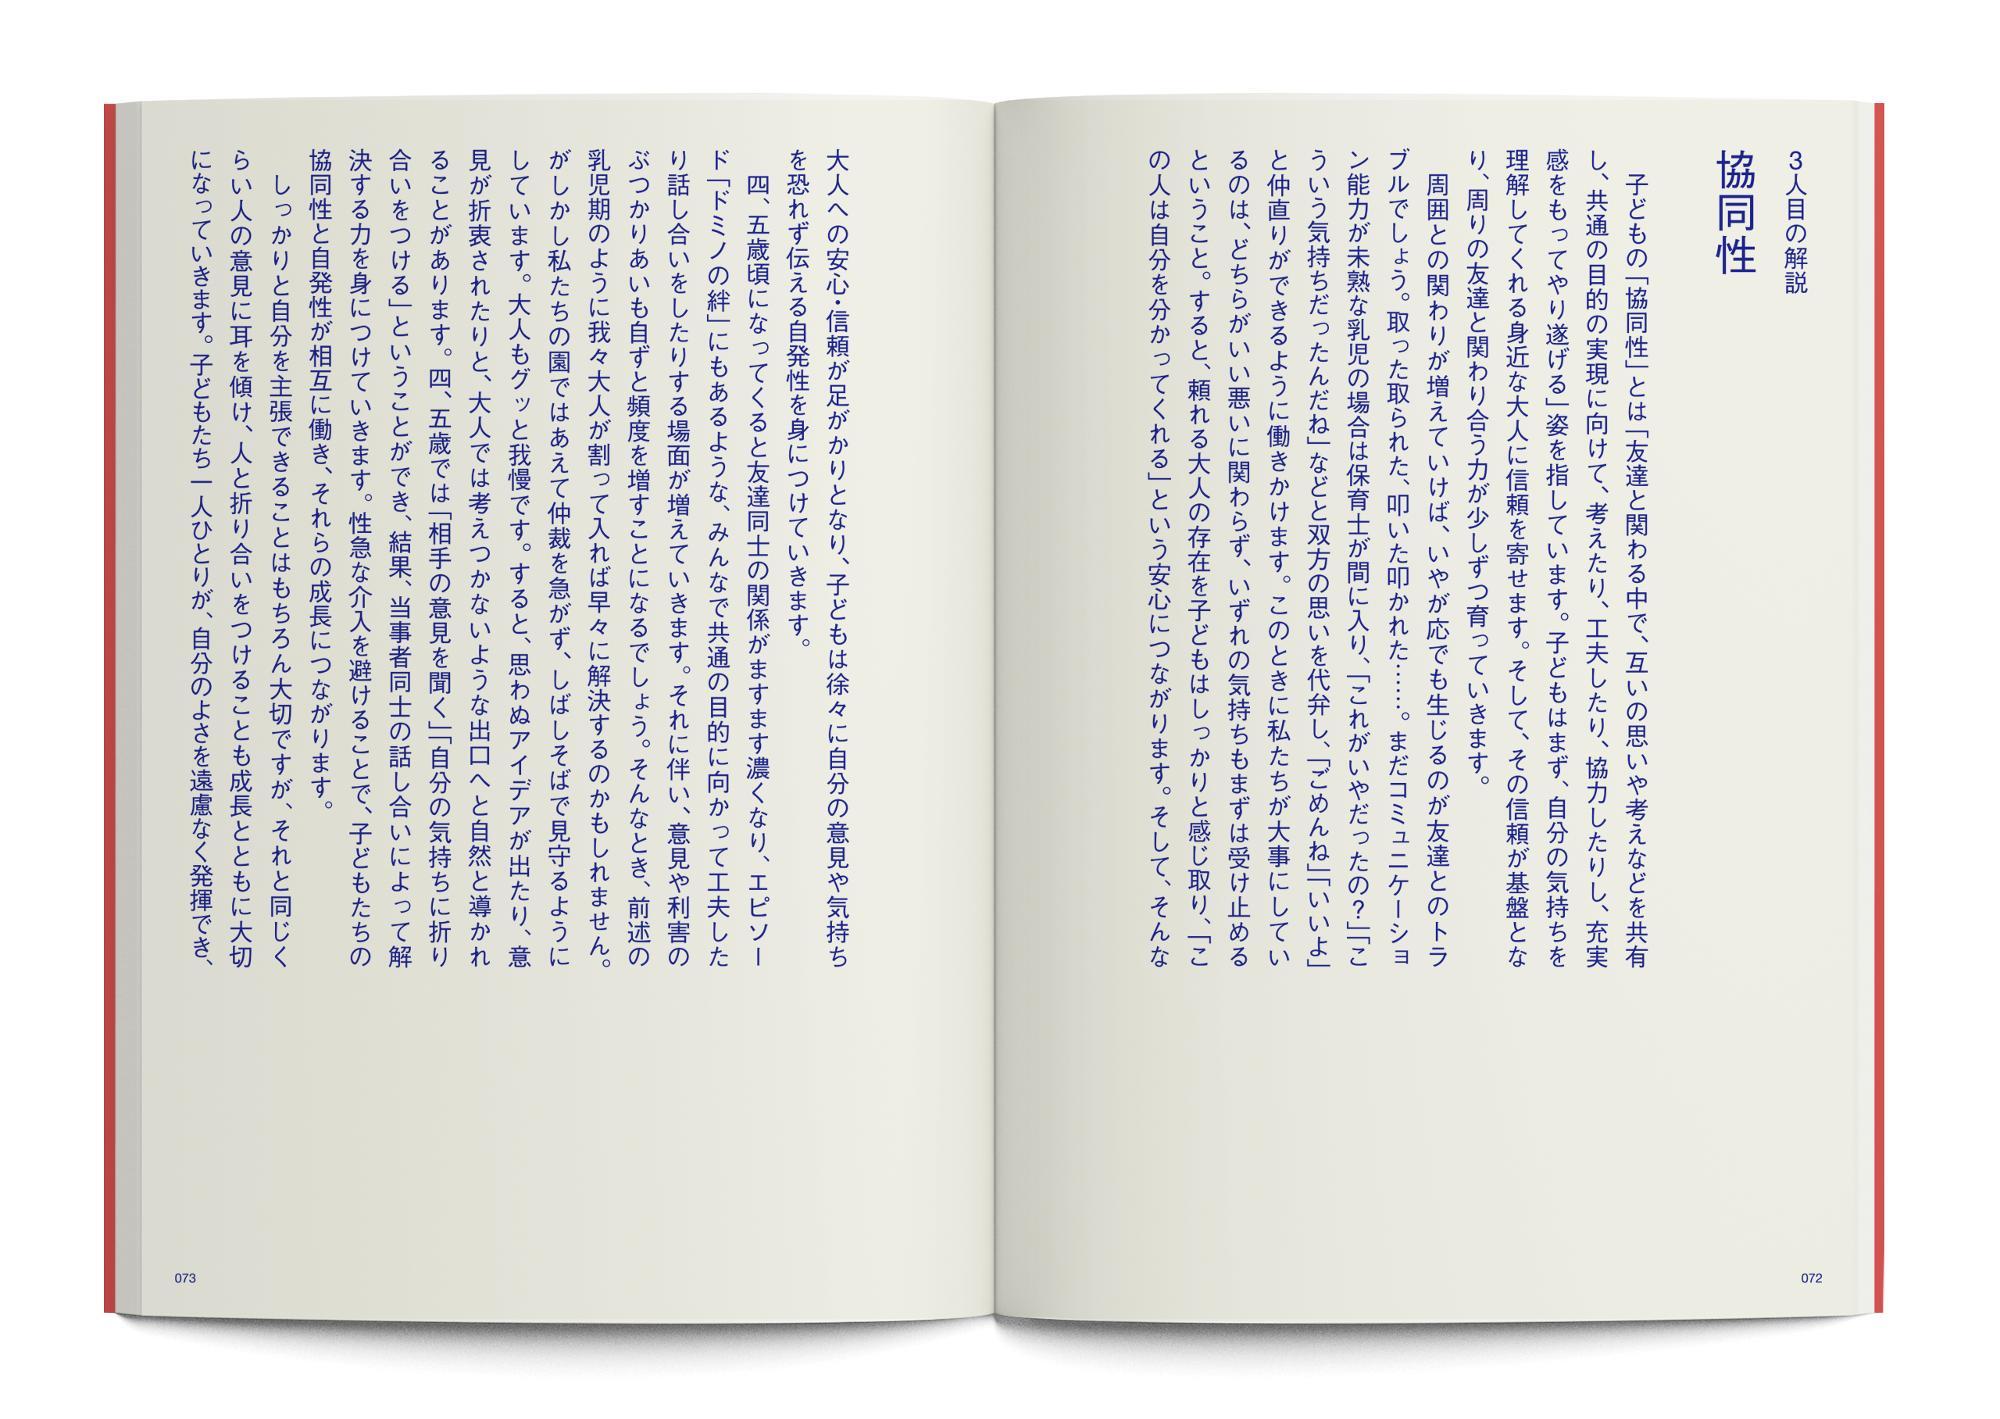 3人目の解説
協同性
子どもの「協同性」とは「友達と関わる中で、互いの思いや考えなどを共有
し、共通の目的の実現に向けて、考えたり、工夫したり、協力したりし、充実
感をもってやり遂げる」姿を指しています。子どもはまず、自分の気持ちを
理解してくれる身近な大人に信頼を寄せます。そして、その信頼が基盤とな
り、周りの友達と関わり合う力が少しずつ育っていきます。
周囲との関わりが増えていけば、いやが応でも生じるのが友達とのトラ
ブルでしょう。取った取られた、叩いた叩かれた……。まだコミュニケーショ
ン能力が未熟な乳児の場合は保育士が間に入り、「これがいやだったの?」「こ
ういう気持ちだったんだね」などと双方の思いを代弁し、「ごめんね」「いいよ」
と仲直りができるように働きかけます。このときに私たちが大事にしてい
るのは、どちらがいい悪いに関わらず、いずれの気持ちもまずは受け止める
ということ。すると、頼れる大人の存在を子どもはしっかりと感じ取り、「こ
の人は自分を分かってくれる」という安心につながります。そして、そんな
072
大人への安心・信頼が足がかりとなり、子どもは徐々に自分の意見や気持ち
を恐れず伝える自発性を身につけていきます。
四、五歳頃になってくると友達同士の関係がますます濃くなり、エピソー
ド「ドミノの絆」にもあるような、みんなで共通の目的に向かって工夫した
り話し合いをしたりする場面が増えていきます。それに伴い、意見や利害の
ぶつかりあいも自ずと頻度を増すことになるでしょう。そんなとき、前述の
乳児期のように我々大人が割って入れば早々に解決するのかもしれません。
がしかし私たちの園ではあえて仲裁を急がず、しばしそばで見守るように
しています。大人もグッと我慢です。すると、思わぬアイデアが出たり、意
見が折衷されたりと、大人では考えつかないような出口へと自然と導かれ
ることがあります。四、五歳では「相手の意見を聞く」「自分の気持ちに折り
合いをつける」ということができ、結果、当事者同士の話し合いによって解
決する力を身につけていきます。性急な介入を避けることで、子どもたちの
協同性と自発性が相互に働き、それらの成長につながります。
しっかりと自分を主張できることはもちろん大切ですが、それと同じく
らい人の意見に耳を傾け、人と折り合いをつけることも成長とともに大切
になっていきます。子どもたち一人ひとりが、自分のよさを遠慮なく発揮でき、
073